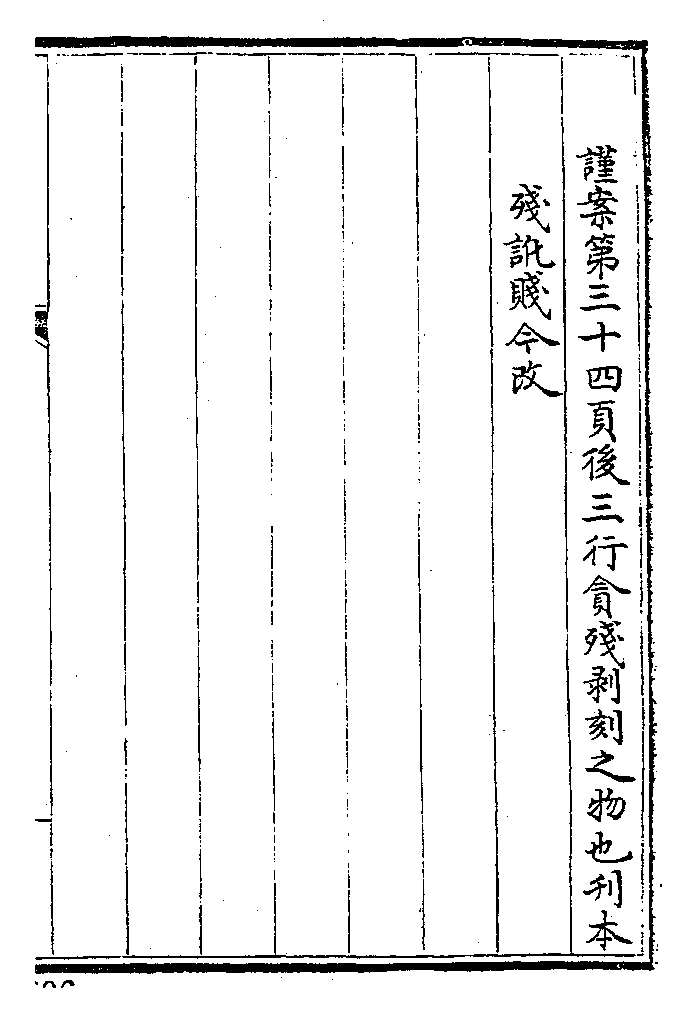 謹案第三十四頁後三行貪殘剥刻之物也刋本
殘訛賤今改